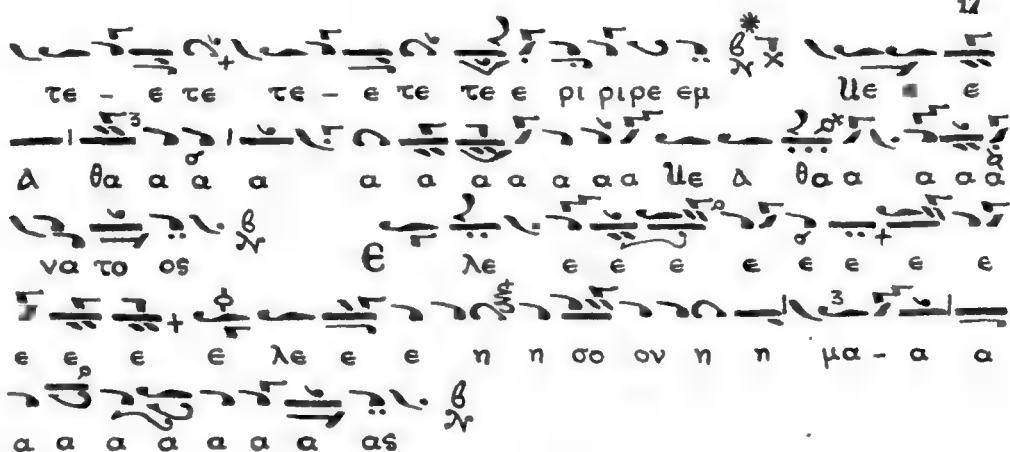 τε - ε τε τε - ε τε τε ε ρι ριρε εμ με - ε
Α θα α α α α α α α α αα με Α θα α α α α
να το ος Ε λε ε ε ε ε ε ε ε ε
ε ε ε ε λε ε ε η η σο ον η η μα - α α
α α α α α α α ας